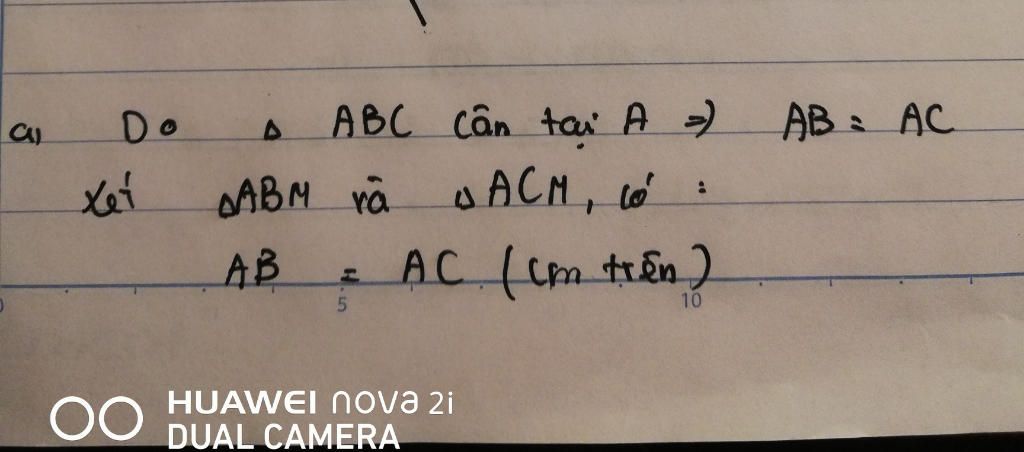 a, Do Δ ABC cân tại A => AB = AC
Xét ΔABM và ΔACM, có :
AB = AC (cm trên)
5 10
HUAWEI nova 2i
DUAL CAMERA